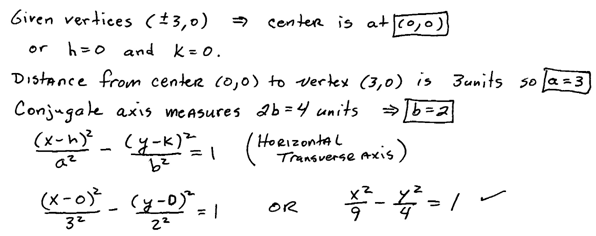 Given vertices (±3,0) ⇒ center is at (0,0)
or h=0 and k=0.
Distance from center (0,0) to vertex (3,0) is 3units so a=3
Conjugate axis measures 2b=4 units ⇒ b=2
(x-h)²/a² - (y-k)²/b² = 1 (Horizontal Transverse Axis)
(x-0)²/3² - (y-0)²/2² = 1 OR x²/9 - y²/4 = 1 ✓